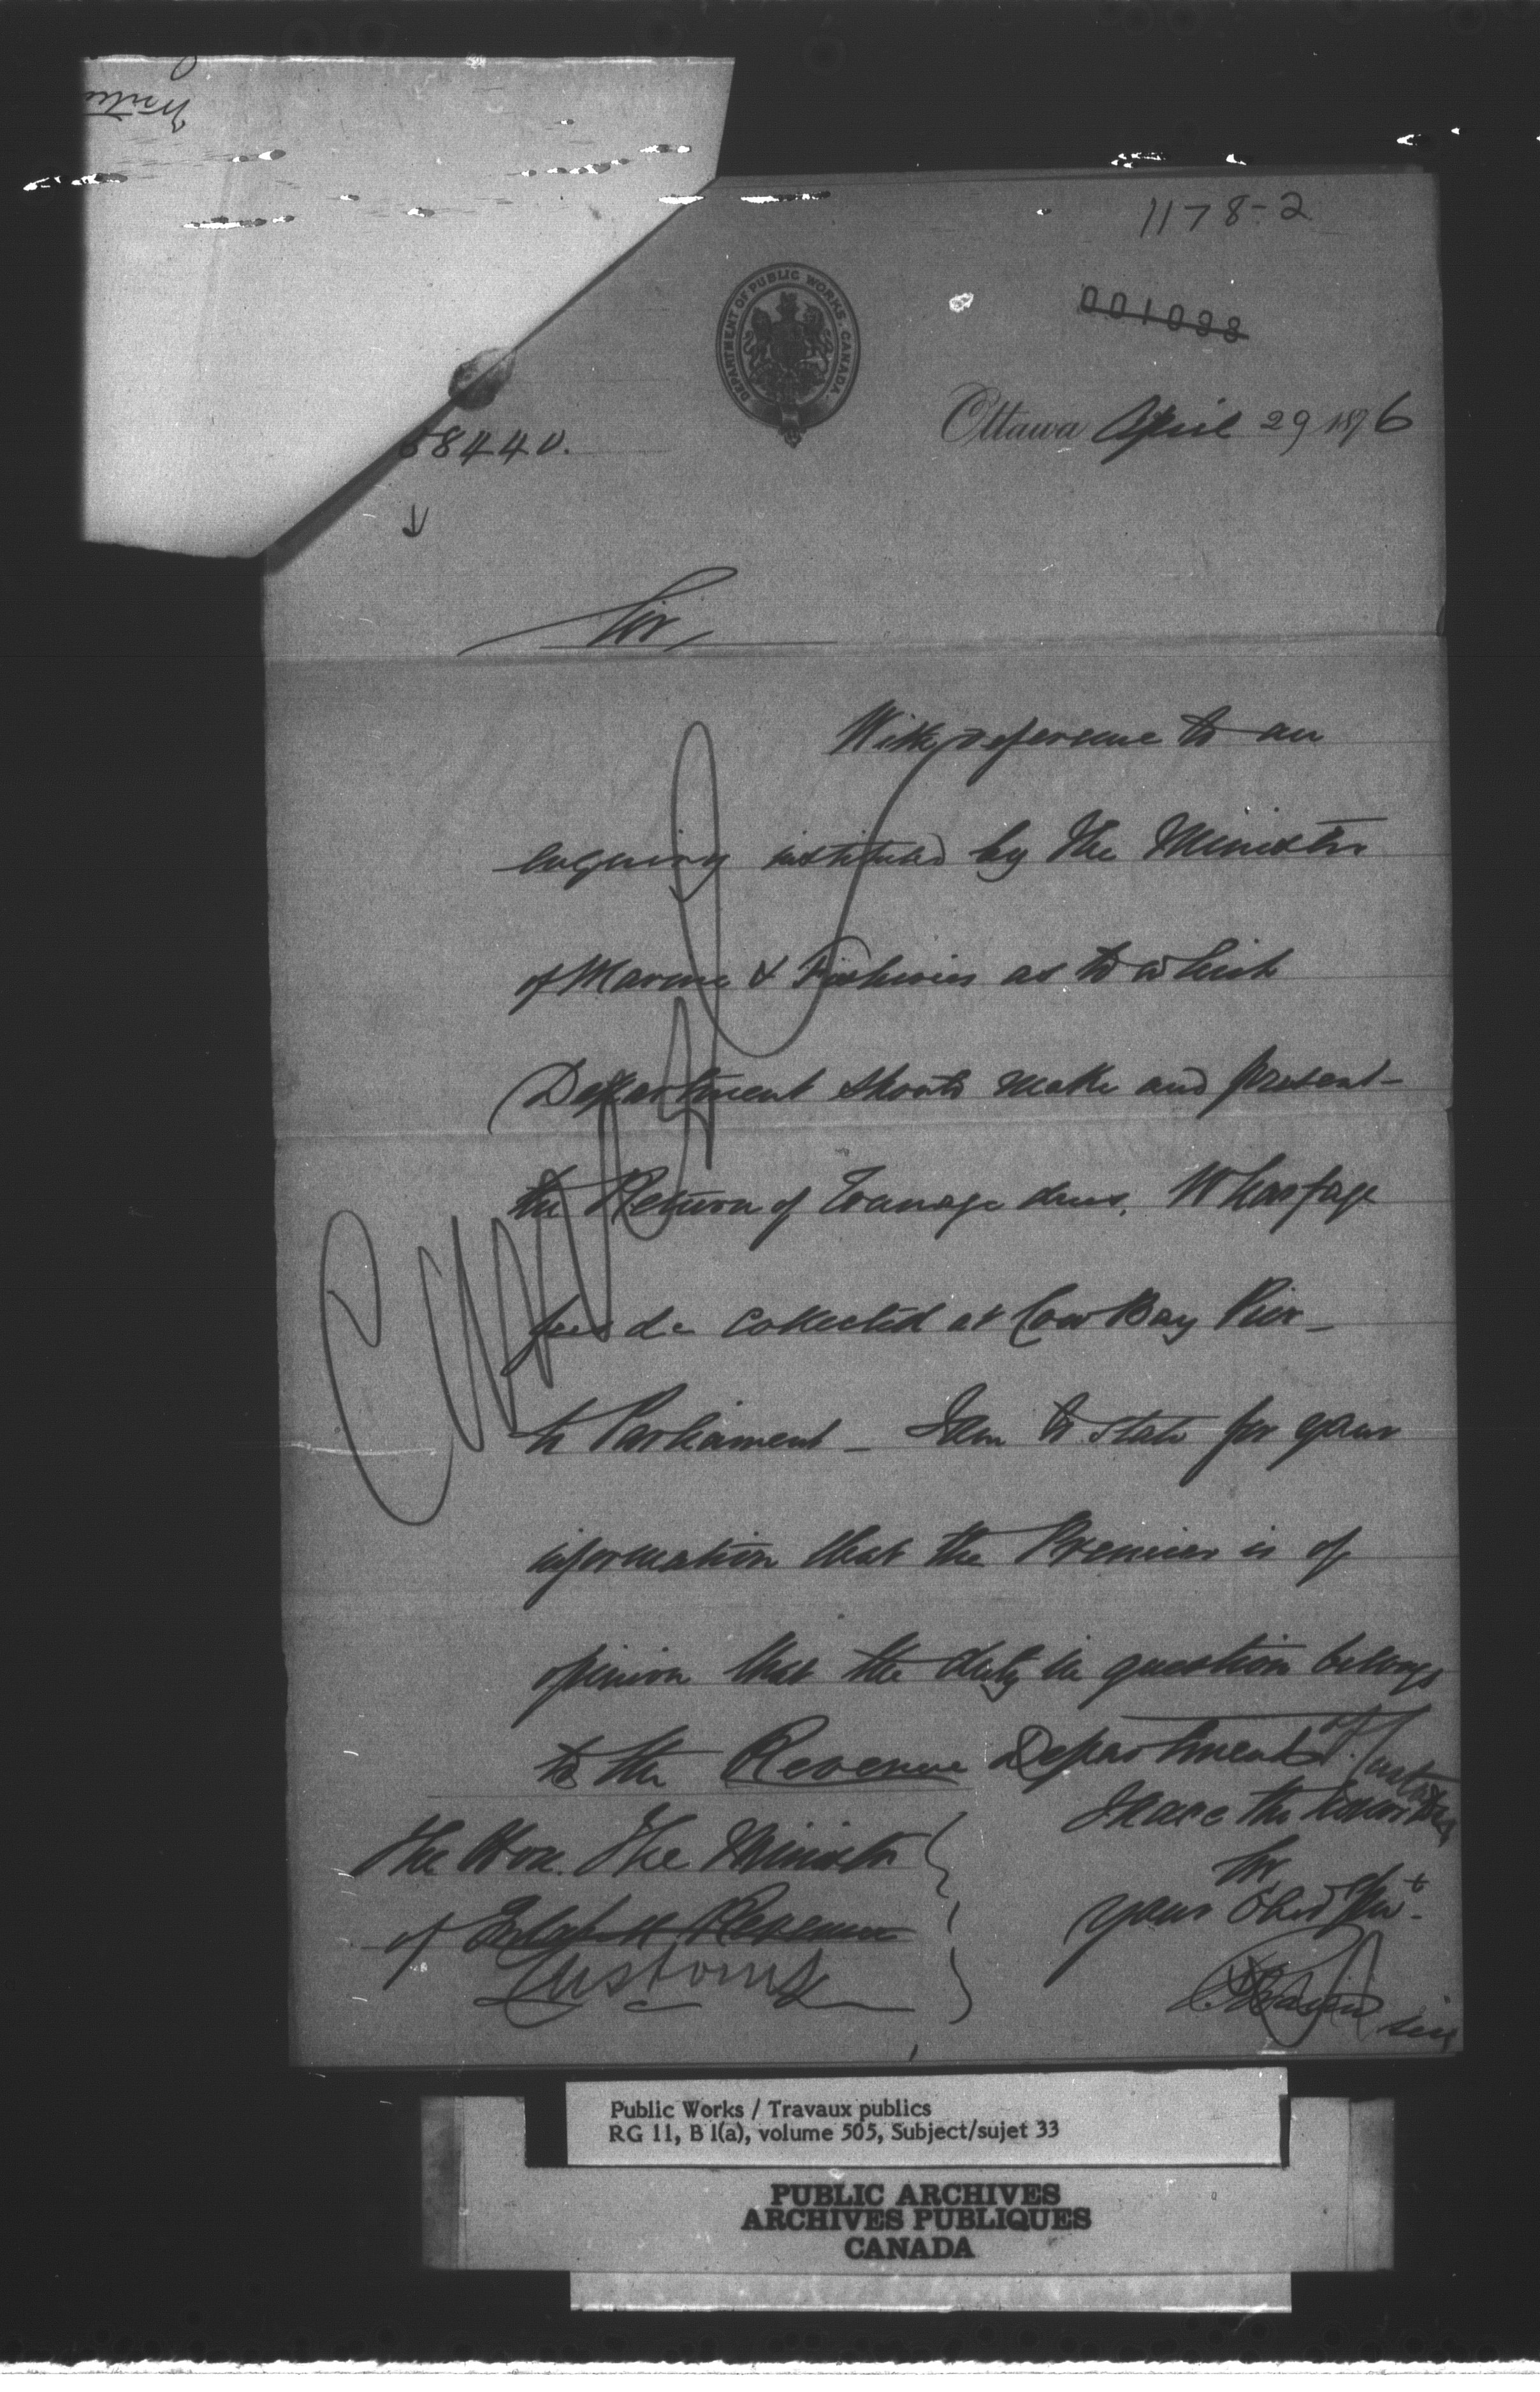 1178-2
DEPARTMENT OF PUBLIC WORKS. CANADA.
001088
Ottawa April 29 1876
58440.
Sir,
With reference to an
enquiry instituted by the Minister
of Marine & Fisheries as to which
Department should make and present
the Return of Tonnage dues, Wharfage
fees &c collected at Cow Bay Pier
to Parliament - I am to state for your
information that the Premier is of
opinion that the duty in question belongs
to the Revenue Department of Customs
I have the honor to be
Sir
your Obed Servt
The Hon. The Minister
of Inland Revenue
Customs
Cancelled
Public Works / Travaux publics
RG 11, B 1(a), volume 505, Subject/sujet 33
PUBLIC ARCHIVES
ARCHIVES PUBLIQUES
CANADA